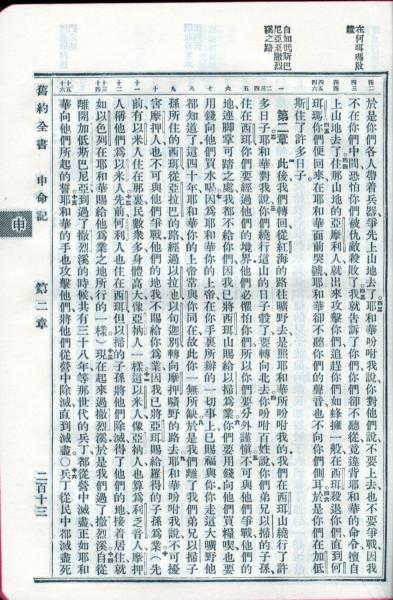 在何珥瑪敗績
自加低斯巴尼亞至撒烈溪之路
於是你們各人帶着兵器爭先上山地去了耶和華吩咐我說你對他們說不要上去也不要爭戰因我
不在你們中間恐怕你們被仇敵殺敗了我就告訴了你們你們卻不聽從竟違背耶和華的命令擅自
上山地去了住那山地的亞摩利人就出來攻擊你們追趕你們如蜂擁一般在西珥殺退你們直到何
珥瑪你們便回來在耶和華面前哭號耶和華卻不聽你們的聲音也不向你們側耳於是你們在加低
斯住了許多日子
第二章 此後我們轉回從紅海的路往曠野去是照耶和華所吩咐我的我們在西珥山繞行了許
多日子耶和華對我說你們繞行這山的日子彀了要轉向北去你吩咐百姓說你們弟兄以掃的子孫
住在西珥你們要經過他們的境界他們必懼怕你們所以你們要分外謹愼不可與他們爭戰他們的
地連脚掌可踏之處我都不給你們因我已將西珥山賜給以掃爲業你們要用錢向他們買糧喫也要
用錢向他們買水喝因爲耶和華你的上帝在你手裏所辦的一切事上已賜福與你你走這大曠野他
都知道了這四十年耶和華你的上帝常與你同在故此你一無所缺於是我們離了我們弟兄以掃子
孫所住的西珥從亞拉巴的路經過以拉他以旬迦別轉向摩押曠野的路去耶和華吩咐我說不可擾
害摩押人也不可與他們爭戰他們的地我不賜給你爲業因我已將亞珥賜給羅得的子孫爲業(先
前有以米人住在那裏民數衆多身體高大像亞衲人一樣這以米人像亞衲人也算爲利乏音人摩押
人稱他們爲以米人先前何利人也住在西珥但以掃的子孫將他們除滅得了他們的地接着居住就
如以色列在耶和華賜給他爲業之地所行的一樣)現在起來過撒烈溪於是我們過了撒烈溪自從
離開加低斯巴尼亞到過了撒烈溪的時候共有三十八年等那世代的兵丁都從營中滅盡正如耶和
華向他們所起的誓耶和華的手也攻擊他們將他們從營中除滅直到滅盡○兵丁從民中都滅盡死
舊約全書 申命記 第二章 二百十三
申